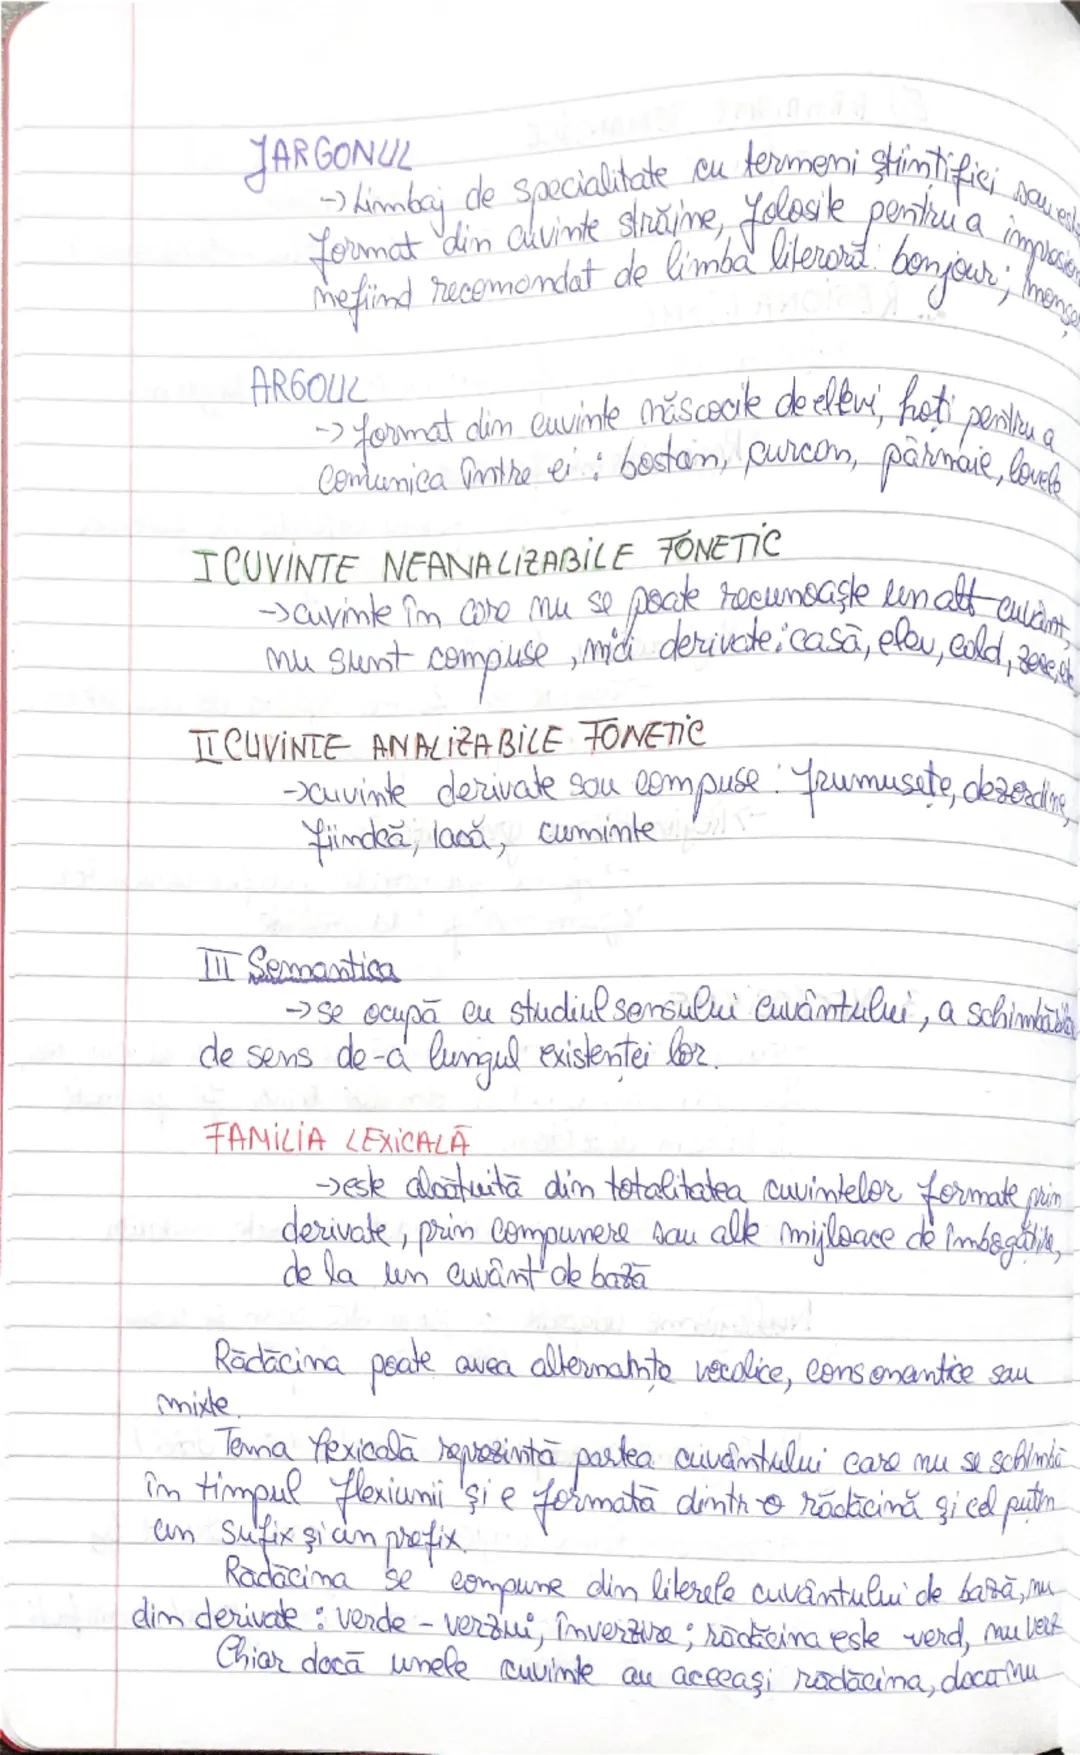 JARGONUL
-> Limbaj de specialitate cu termeni ştiintifici sau este
format din cuvinte străine, folosite pentru a impresion
nefiind recomandat de limba literară: bonjour;
ARGOUL
-> format din cuvinte născocite de ellevi, hoţi pentru a
comunica între ei: bostan, curcan, pârnaie, lovele
I CUVINTE NEANALIZABILE FONETIC
-> cuvinte în care nu se poate recunoaşte un alt cuvânt,
nu sunt compuse, nici derivate: casă, elev, cald, zece, etc
II CUVINTE ANALIZABILE FONETIC
-> cuvinte derivate sau compuse: frumuseţe, dezordine,
fiindcă, lacă, cuminte
III Semantica
-> se ocupă cu studiul sensului cuvântului, a schimbării
de sens de-a lungul existenţei lor.
FAMILIA LEXICALĂ
-> este alcătuită din totalitatea cuvintelor formate prin
derivate, prin compunere sau alte mijloace de îmbogăţire,
de la un cuvânt de bază
Rădăcina poate avea alternanţe vocalice, consonantice sau
mixte.
Tema flexicală reprezintă partea cuvântului care nu se schimbă
în timpul flexiunii şi e formată dintr-o rădăcină şi cel puţin
un sufix şi un prefix.
Rădăcina se compune din literele cuvântului de bază, nu
din derivate: verde - verzui, înverzire; rădăcina este verd, nu verz
Chiar dacă unele cuvinte au aceeaşi rădăcina, daca nu